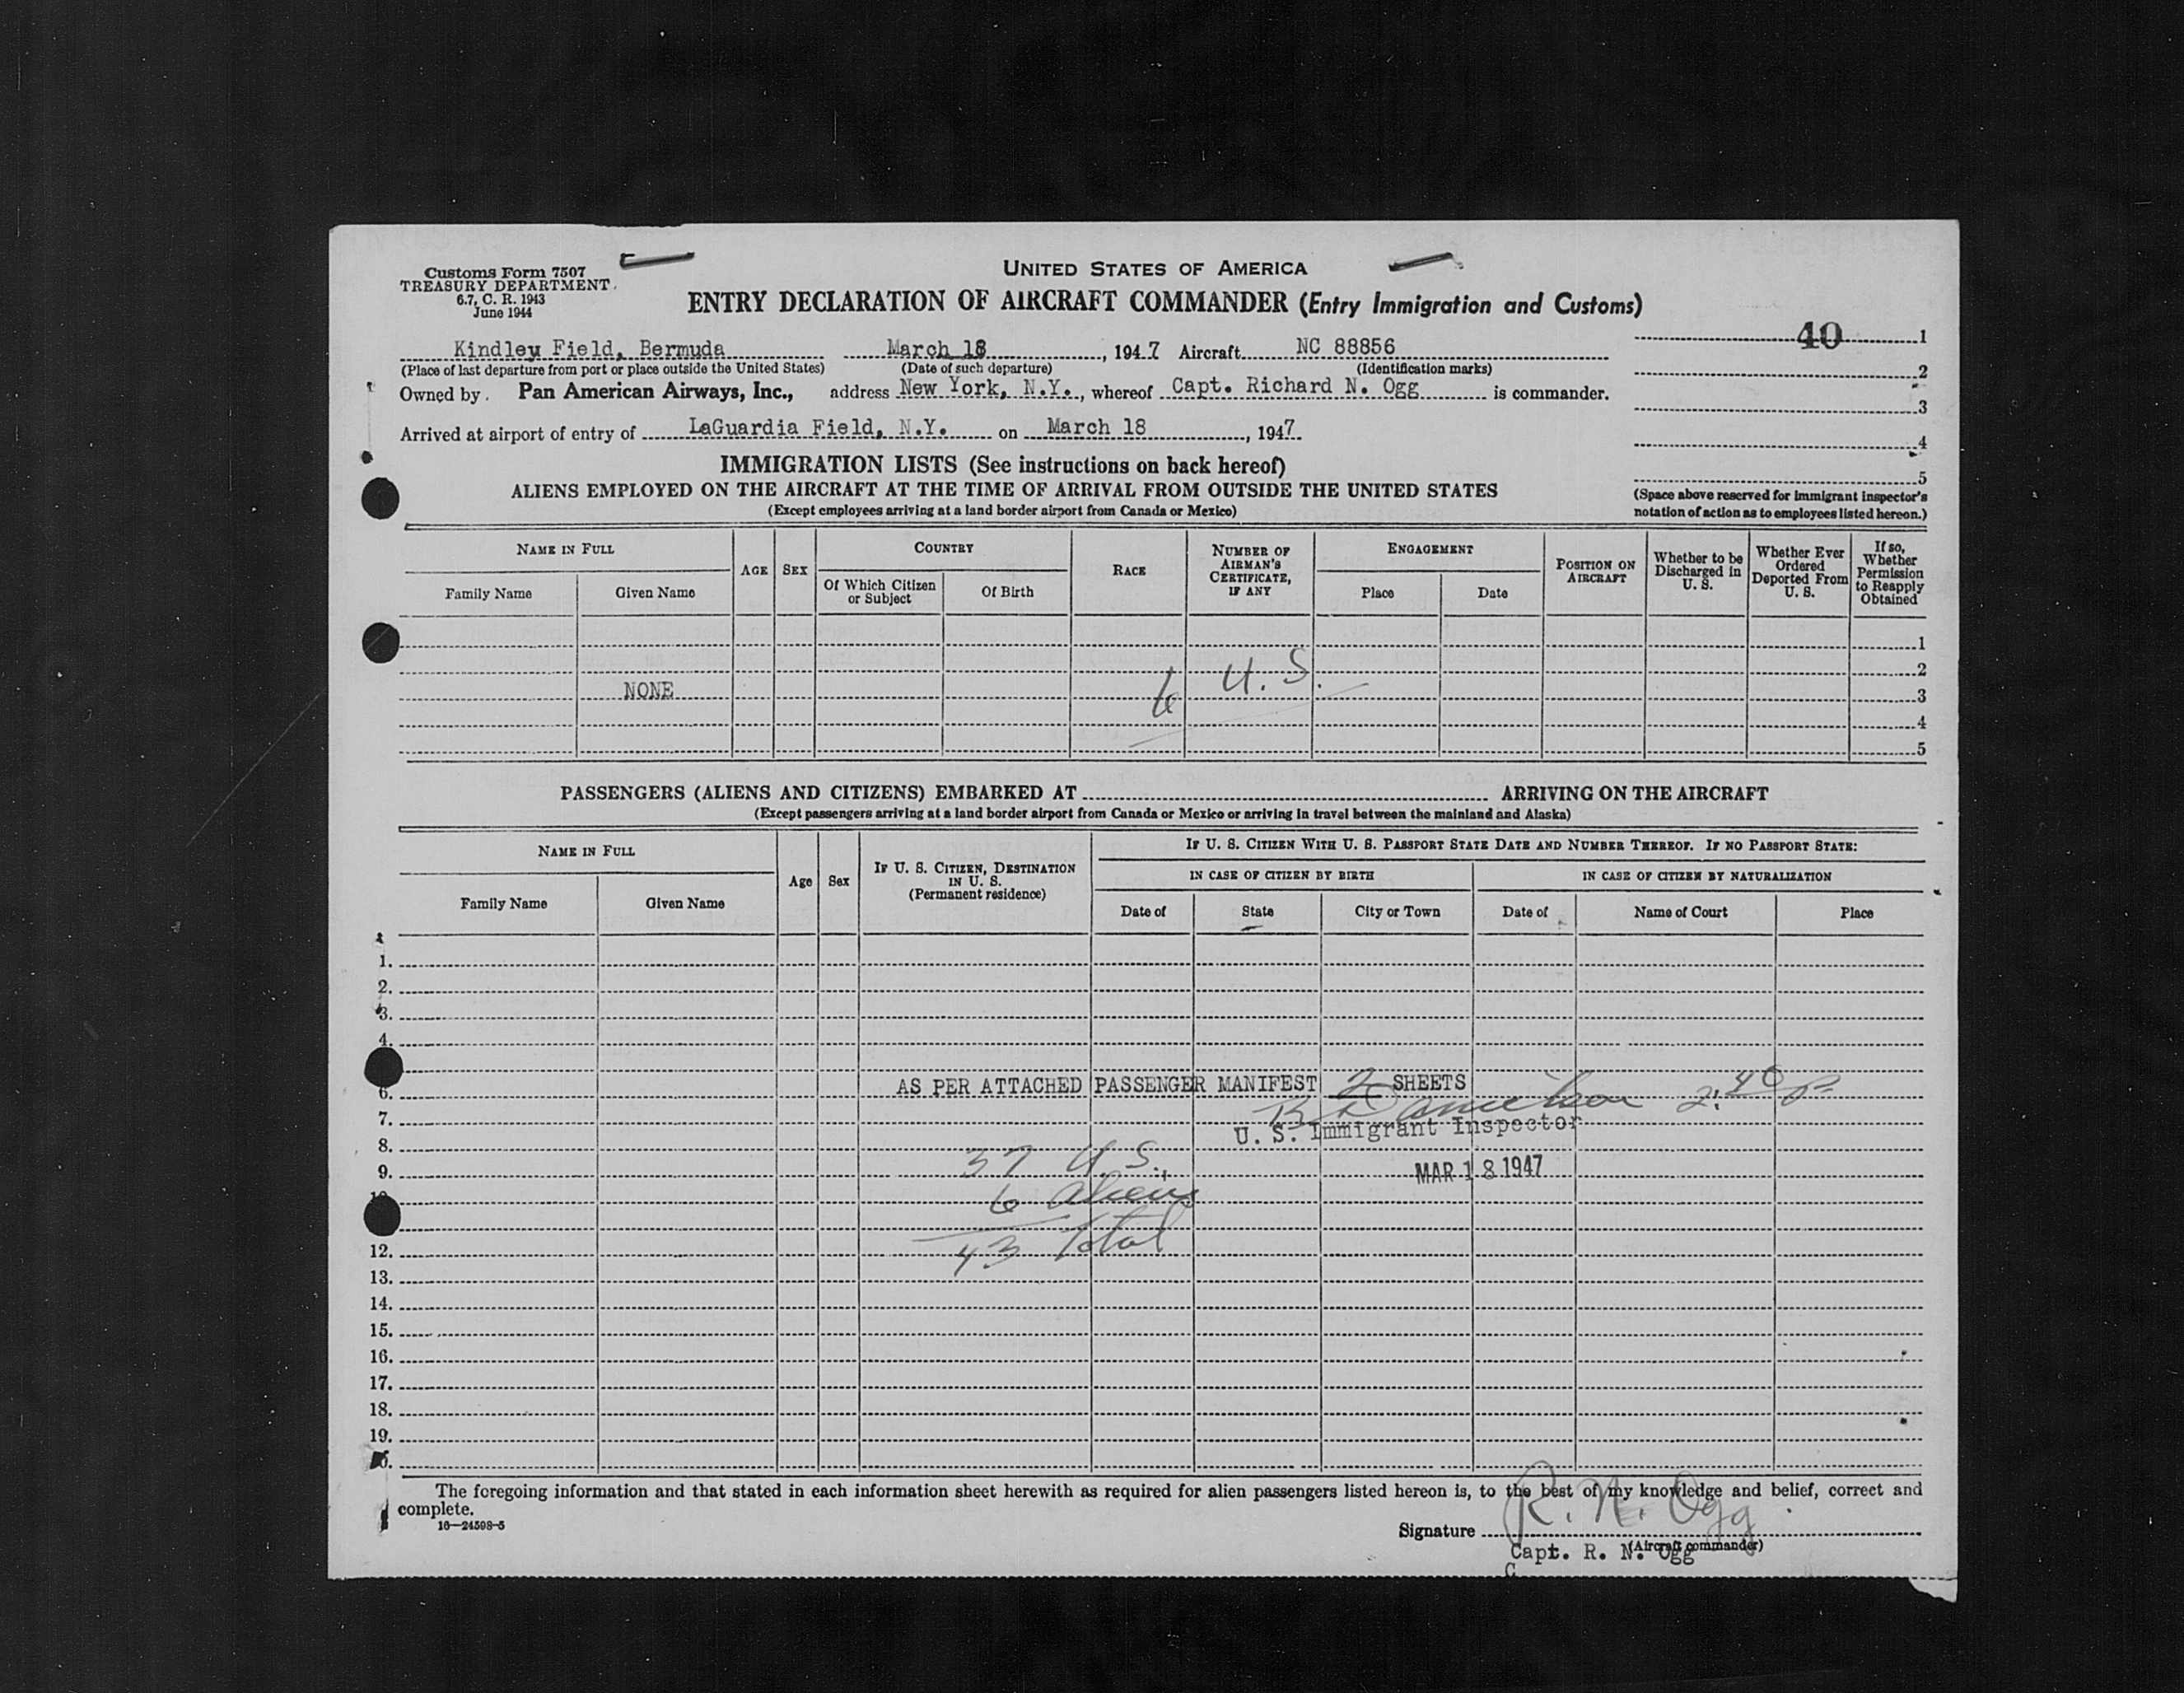 Customs Form 7507
TREASURY DEPARTMENT
6.7, C. R. 1943
June 1944
UNITED STATES OF AMERICA
ENTRY DECLARATION OF AIRCRAFT COMMANDER (Entry Immigration and Customs)
40 1
Kindley Field, Bermuda March 18, 1947 Aircraft NC 88856
(Place of last departure from port or place outside the United States) (Date of such departure) (Identification marks)
2
Owned by Pan American Airways, Inc., address New York, N.Y., whereof Capt. Richard N. Ogg is commander.
3
Arrived at airport of entry of LaGuardia Field, N.Y. on March 18, 1947.
4
IMMIGRATION LISTS (See instructions on back hereof)
5
ALIENS EMPLOYED ON THE AIRCRAFT AT THE TIME OF ARRIVAL FROM OUTSIDE THE UNITED STATES
(Except employees arriving at a land border airport from Canada or Mexico)
(Space above reserved for immigrant inspector's
notation of action as to employees listed hereon.)
NAME IN FULL
Family Name Given Name
AGE
SEX
COUNTRY
Of Which Citizen
or Subject
Of Birth
RACE
NUMBER OF
AIRMAN'S
CERTIFICATE,
IF ANY
ENGAGEMENT
Place Date
POSITION ON
AIRCRAFT
Whether to be
Discharged in
U. S.
Whether Ever
Ordered
Deported From
U. S.
If so,
Whether
Permission
to Reapply
Obtained
1
2
NONE 6 U.S. 3
4
5
PASSENGERS (ALIENS AND CITIZENS) EMBARKED AT ARRIVING ON THE AIRCRAFT
(Except passengers arriving at a land border airport from Canada or Mexico or arriving in travel between the mainland and Alaska)
NAME IN FULL
Family Name Given Name
Age
Sex
IF U. S. CITIZEN, DESTINATION
IN U. S.
(Permanent residence)
IF U. S. CITIZEN WITH U. S. PASSPORT STATE DATE AND NUMBER THEREOF. IF NO PASSPORT STATE:
IN CASE OF CITIZEN BY BIRTH
Date of State City or Town
IN CASE OF CITIZEN BY NATURALIZATION
Date of Name of Court Place
1.
2.
3.
4.
6. AS PER ATTACHED PASSENGER MANIFEST 2 SHEETS
2:40 p
7.
U. S. Immigrant Inspector
8.
37 U.S.
9. MAR 18 1947
6 aliens
43 Total
12.
13.
14.
15.
16.
17.
18.
19.
The foregoing information and that stated in each information sheet herewith as required for alien passengers listed hereon is, to the best of my knowledge and belief, correct and
complete.
16—24598-5
Signature R. N. Ogg
(Aircraft commander)
Capt. R. N. Ogg
C